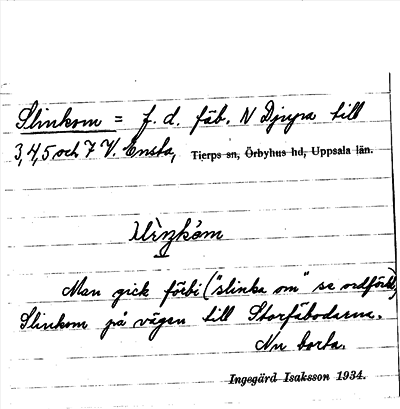 Slinkom = f. d. fäb. N Djupa till
3, 4, 5 och 7 V. Ensta, Tierps sn, Örbyhus hd, Uppsala län.
Man gick förbi ("slinka om" se ordförkl.)
Slinkom på vägen till Storfäbodarna.
Nu borta.
Ingegärd Isaksson 1934.